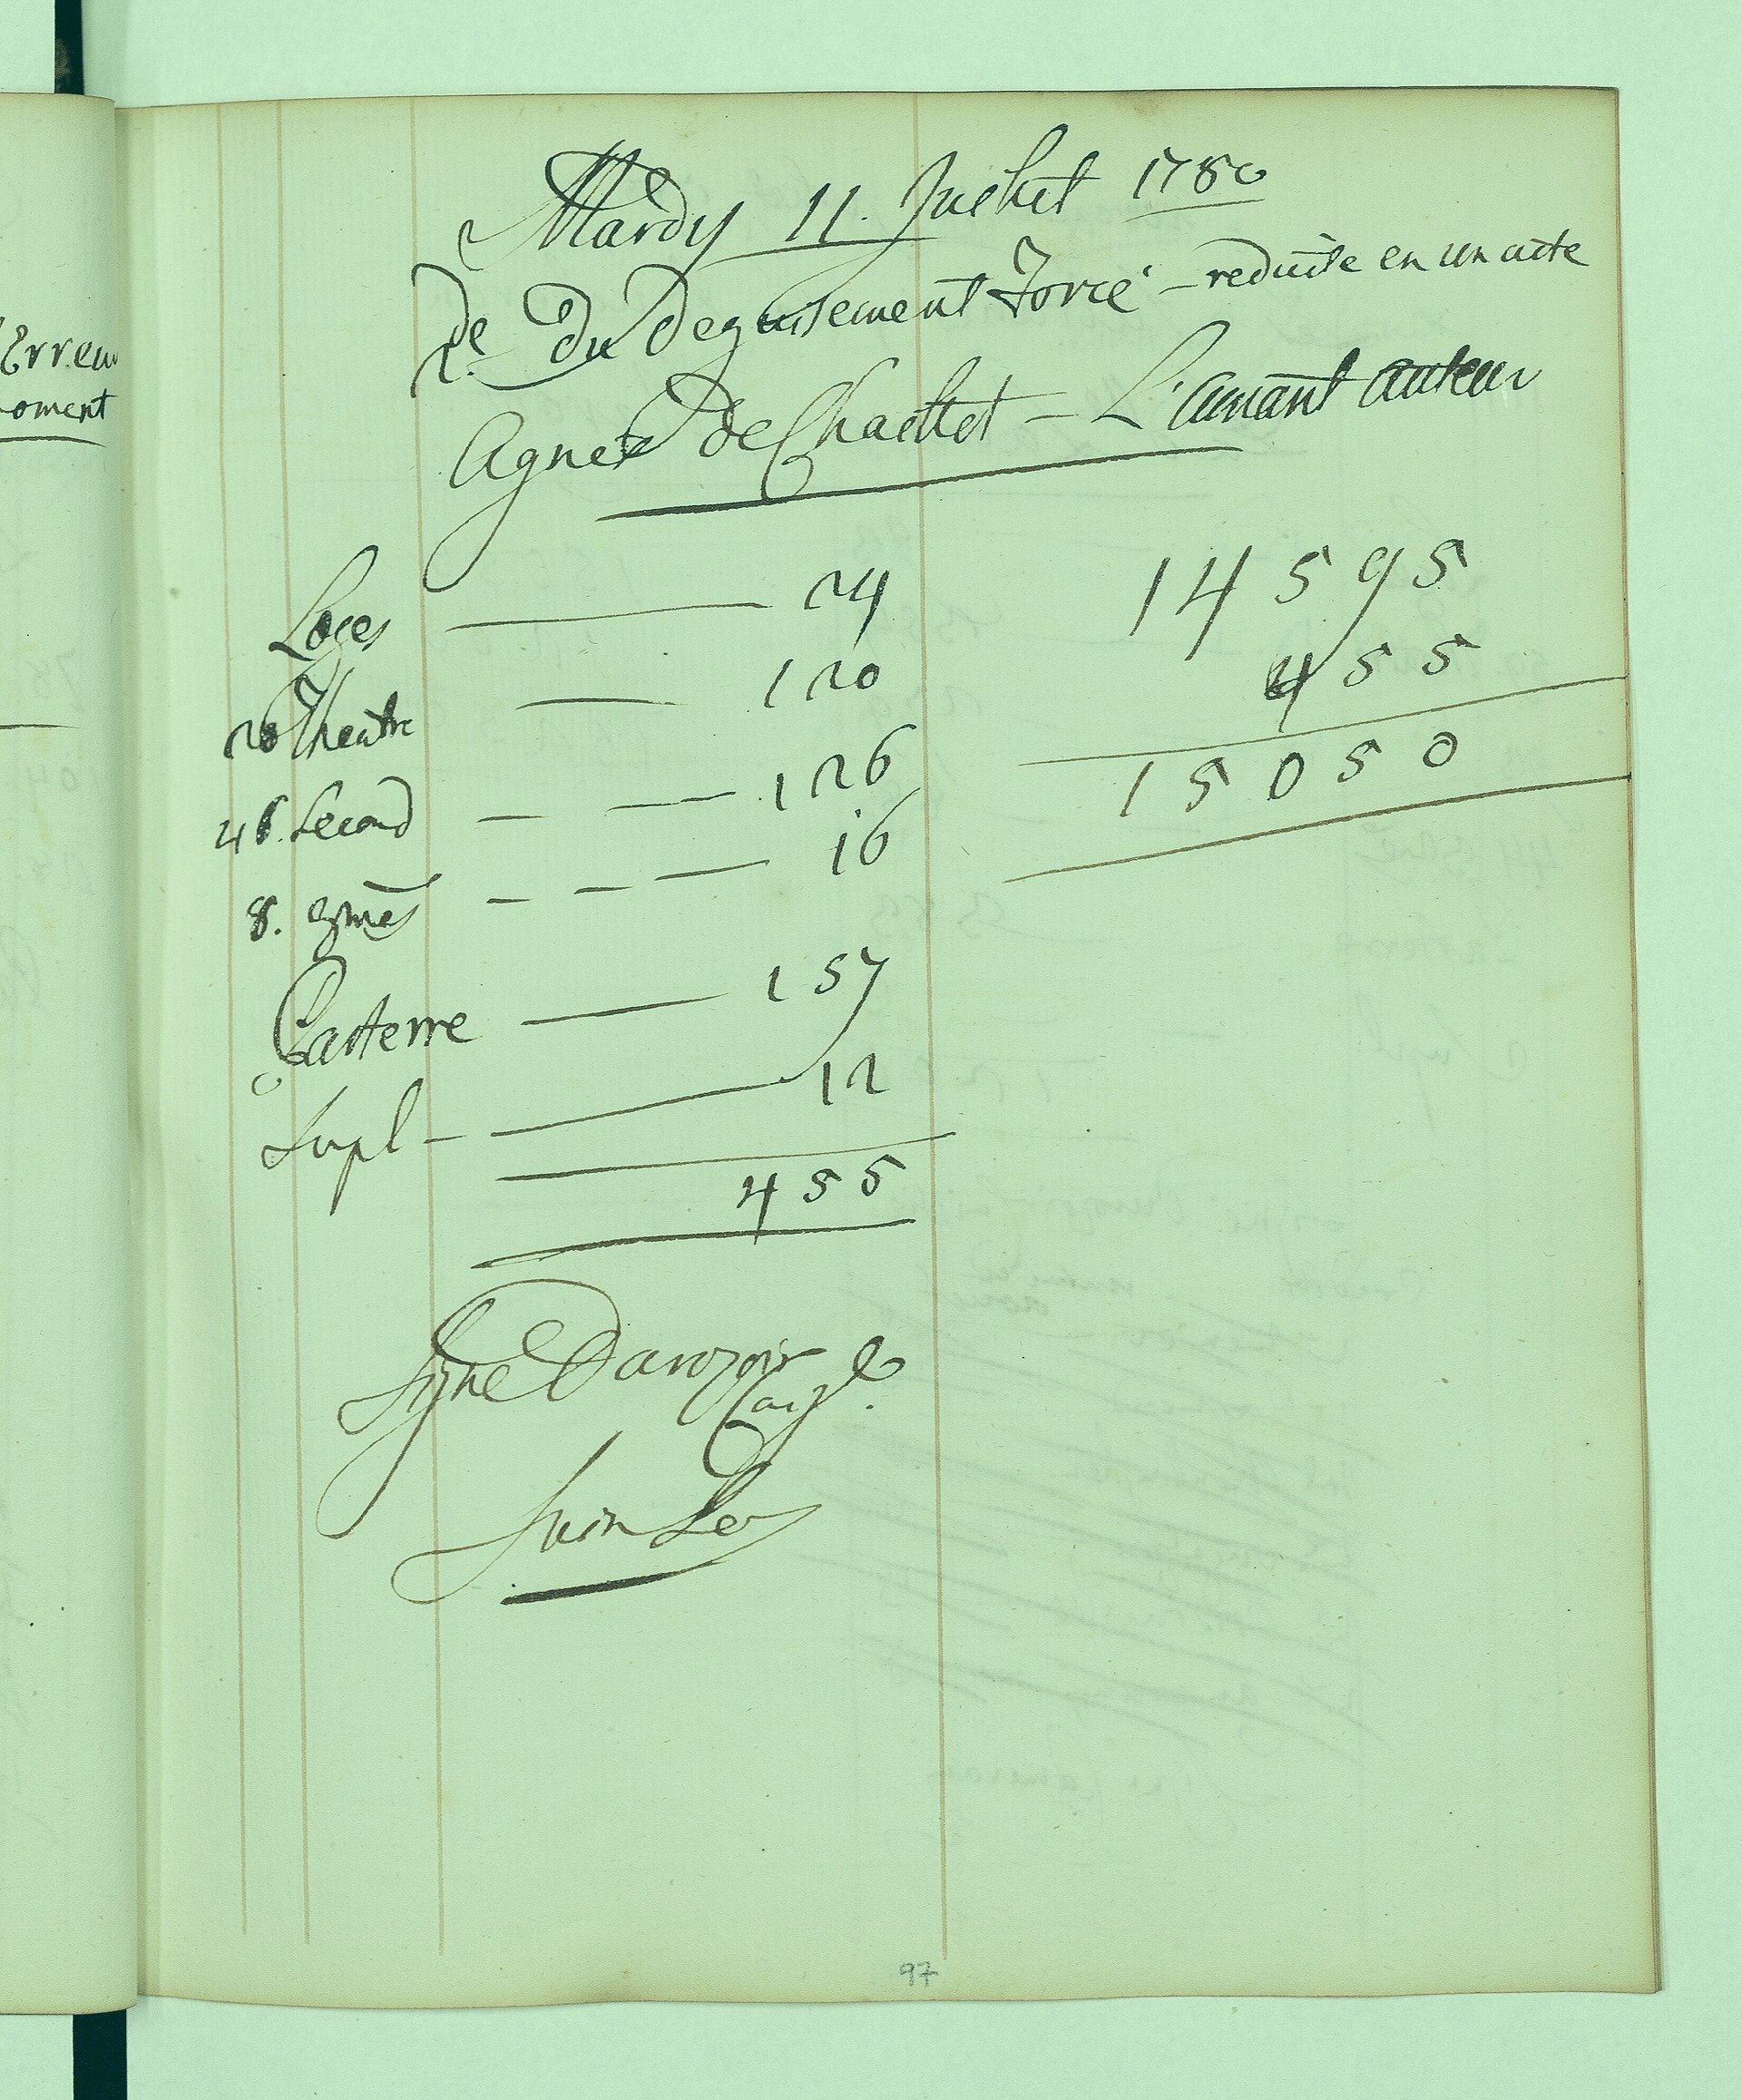 Erreu
oment
Mardy 11. Juellet 1780
2.e Du Deguisement Forcé - reduite en un acte
Agnes de Chaillot - L'amant auteur
Loges 24
20 Theatre 120
46. Second 126
8. 3mes 16
Parterre 157
Supl 12
455
14595
455
15050
Signe
97